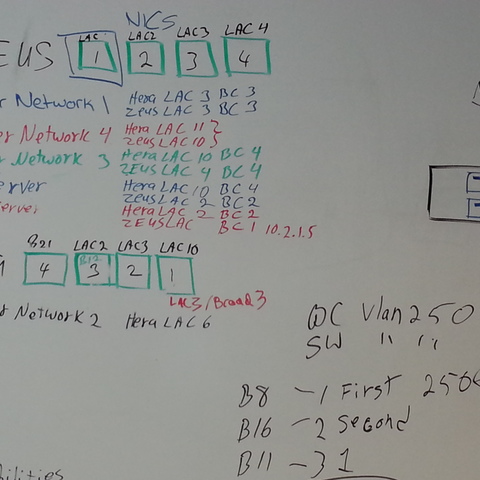 NICS
LAC LAC2 LAC3 LAC 4
EUS 1 2 3 4
er Network 1 Hera LAC 3 BC 3
Zeus LAC 3 BC 3
er Network 4 Hera LAC 11
Zeus LAC 10
Network 3 Hera LAC 10 BC 4
ZEUS LAC 4 BC 4
erver Hera LAC 10 BC 4
Zeus LAC 2 BC 2
Server Hera LAC 2 BC 2
ZEUS LAC BC 1 10.2.1.5
B21 LAC2 LAC3 LAC10
4 B12 3 2 1
LAC3/Broad3
Network 2 Hera LAC 6
DC Vlan 250
SW " "
B8 - 1 First 250
B16 - 2 Second
B11 - 3 1
bilities